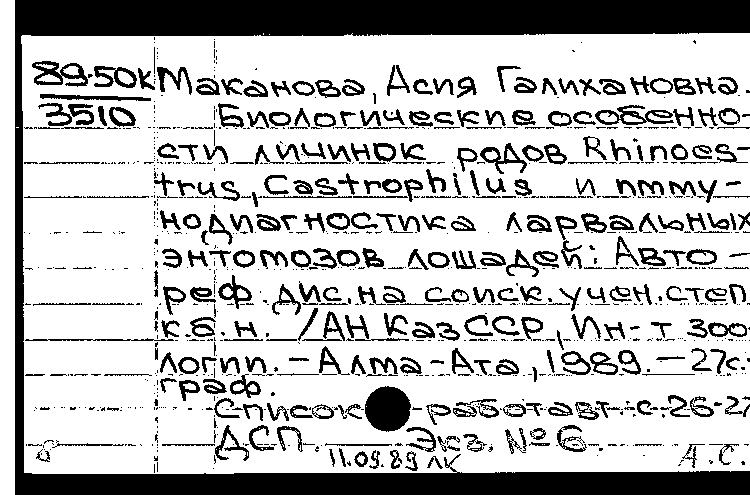 89-50к Маканова, Асия Галихановна.
3510 Биологические особенно-
сти личинок родов Rhinoes-
trus, Castrophilus и имму-
нодиагностика ларвальных
энтомозов лошадей: Авто-
реф. дис. на соиск. учен. степ.
к.б.н. /АН КазССР, Ин-т зоо
логии. - Алма-Ата, 1989. - 27с.
граф.
Список работ авт.: с. 26-27
ДСП. Экз. №6.
11.09.89 лк А.С.